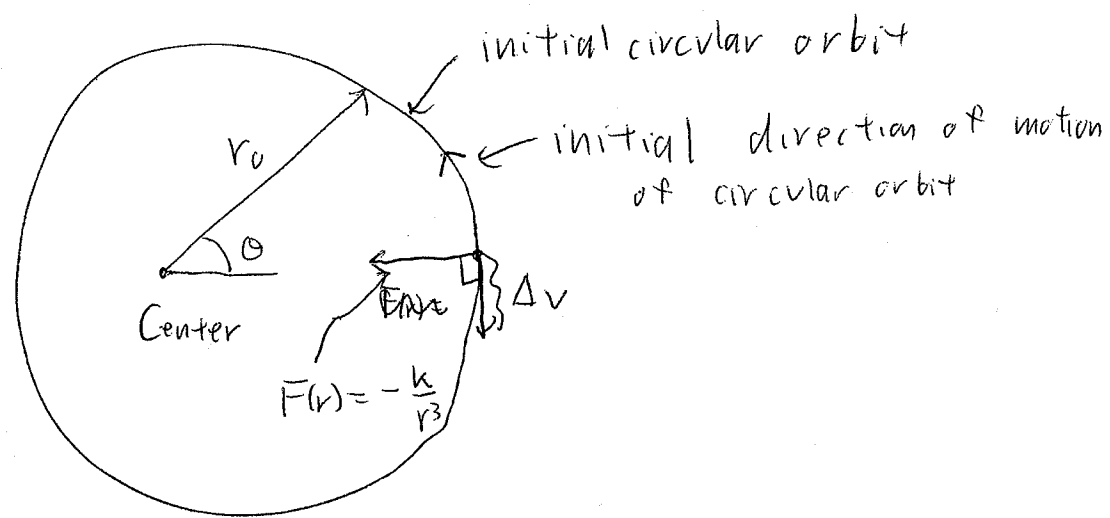 initial circular orbit
initial direction of motion
of circular orbit
r₀
θ
Center
Δv
F(r) = - k/r³